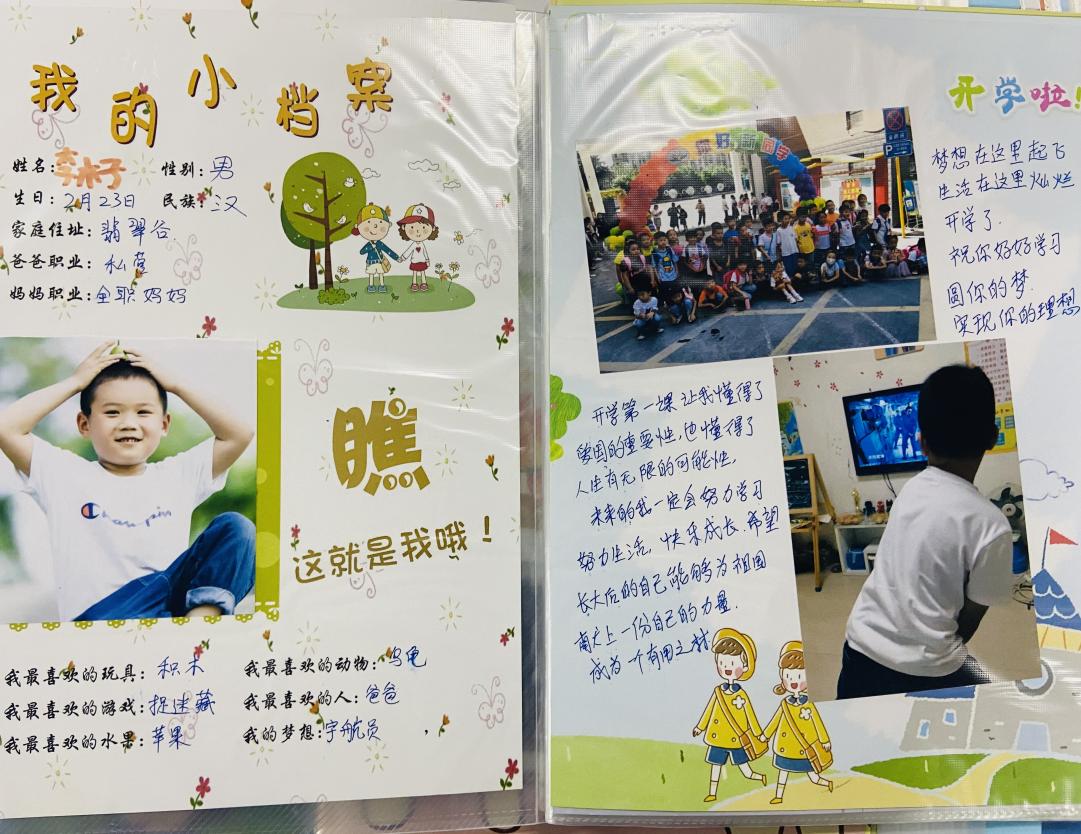 我的小档案
姓名：李木子 性别：男
生日：2月23日 民族：汉
家庭住址：翡翠谷
爸爸职业：私营
妈妈职业：全职妈妈
Champion
瞧
这就是我哦！
我最喜欢的玩具：积木 我最喜欢的动物：乌龟
我最喜欢的游戏：捉迷藏 我最喜欢的人：爸爸
我最喜欢的水果：苹果 我的梦想：宇航员
开学啦！
你好 新同学
P
梦想在这里起飞
生活在这里灿烂
开学了.
祝你好好学习
圆你的梦.
实现你的理想
开学第一课让我懂得了
爱国的重要性,也懂得了
人生有无限的可能性,
未来的我一定会努力学习
努力生活,快乐成长.希望
长大后的自己能够为祖国
献上一份自己的力量.
成为一个有用之材